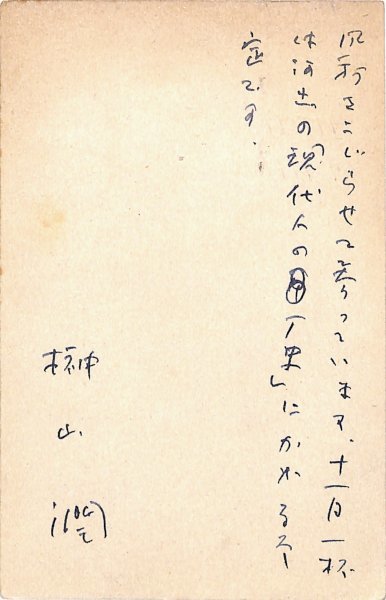 風邪をこじらせて参っています、十一月一杯
は河出の現代人の日本史」にかかる予
定です。
榊山潤